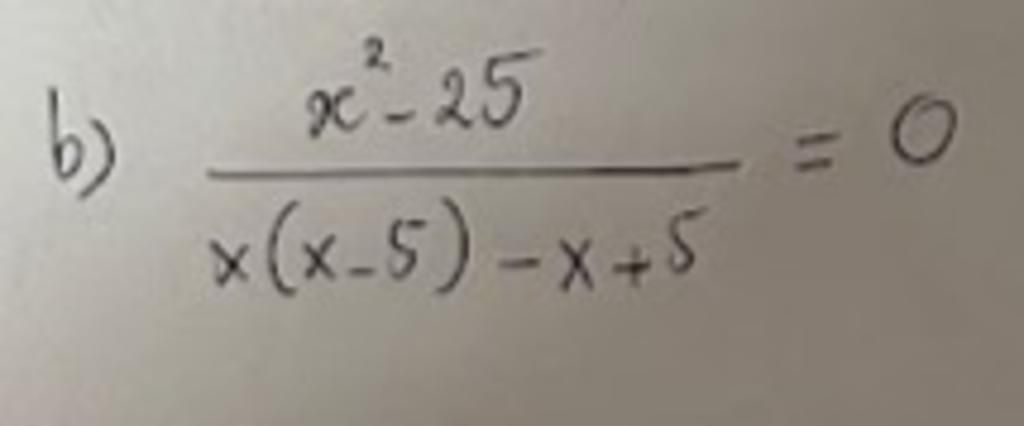 b) x² - 25
――――――――――― = 0
x(x - 5) - x + 5